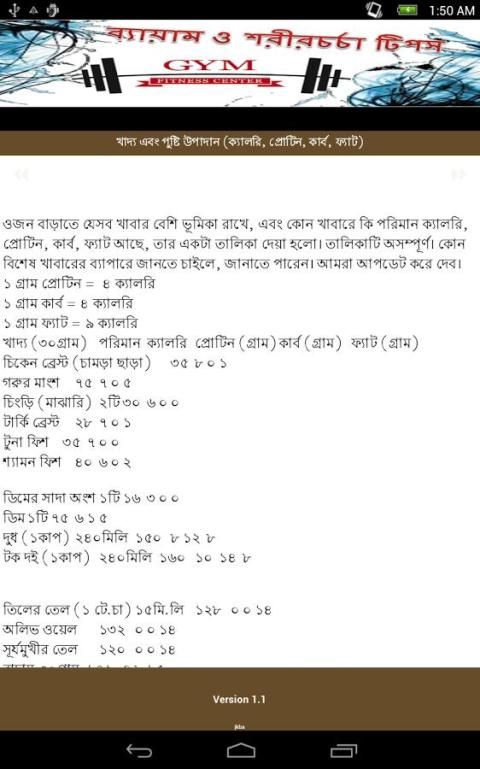 1:50 AM
ব্যায়াম ও শরীরচর্চা টিপস
GYM
FITNESS CENTER
খাদ্য এবং পুষ্টি উপাদান (ক্যালরি, প্রোটিন, কার্ব, ফ্যাট)
ওজন বাড়াতে যেসব খাবার বেশি ভূমিকা রাখে, এবং কোন খাবারে কি পরিমান ক্যালরি,
প্রোটিন, কার্ব, ফ্যাট আছে, তার একটা তালিকা দেয়া হলো। তালিকাটি অসম্পূর্ণ। কোন
বিশেষ খাবারের ব্যাপারে জানতে চাইলে, জানাতে পারেন। আমরা আপডেট করে দেব।
১ গ্রাম প্রোটিন = ৪ ক্যালরি
১ গ্রাম কার্ব = ৪ ক্যালরি
১ গ্রাম ফ্যাট = ৯ ক্যালরি
খাদ্য (৩০গ্রাম) পরিমান ক্যালরি প্রোটিন (গ্রাম) কার্ব (গ্রাম) ফ্যাট (গ্রাম)
চিকেন ব্রেস্ট (চামড়া ছাড়া) ৩৫ ৮ ০ ১
গরুর মাংশ ৭৫ ৭ ০ ৫
চিংড়ি (মাঝারি) ২টি ৩০ ৬ ০ ০
টার্কি ব্রেস্ট ২৮ ৭ ০ ১
টুনা ফিশ ৩৫ ৭ ০ ০
শ্যামন ফিশ ৪০ ৬ ০ ২
ডিমের সাদা অংশ ১টি ১৬ ৩ ০ ০
ডিম ১টি ৭৫ ৬ ১ ৫
দুধ (১কাপ) ২৪০মিলি ১৫০ ৮ ১২ ৮
টক দই (১কাপ) ২৪০মিলি ১৬০ ১০ ১৪ ৮
তিলের তেল ( ১ টে.চা) ১৫মি.লি ১২৮ ০ ০ ১৪
অলিভ ওয়েল ১৩২ ০ ০ ১৪
সূর্যমুখীর তেল ১২০ ০ ০ ১৪
Version 1.1
jkba